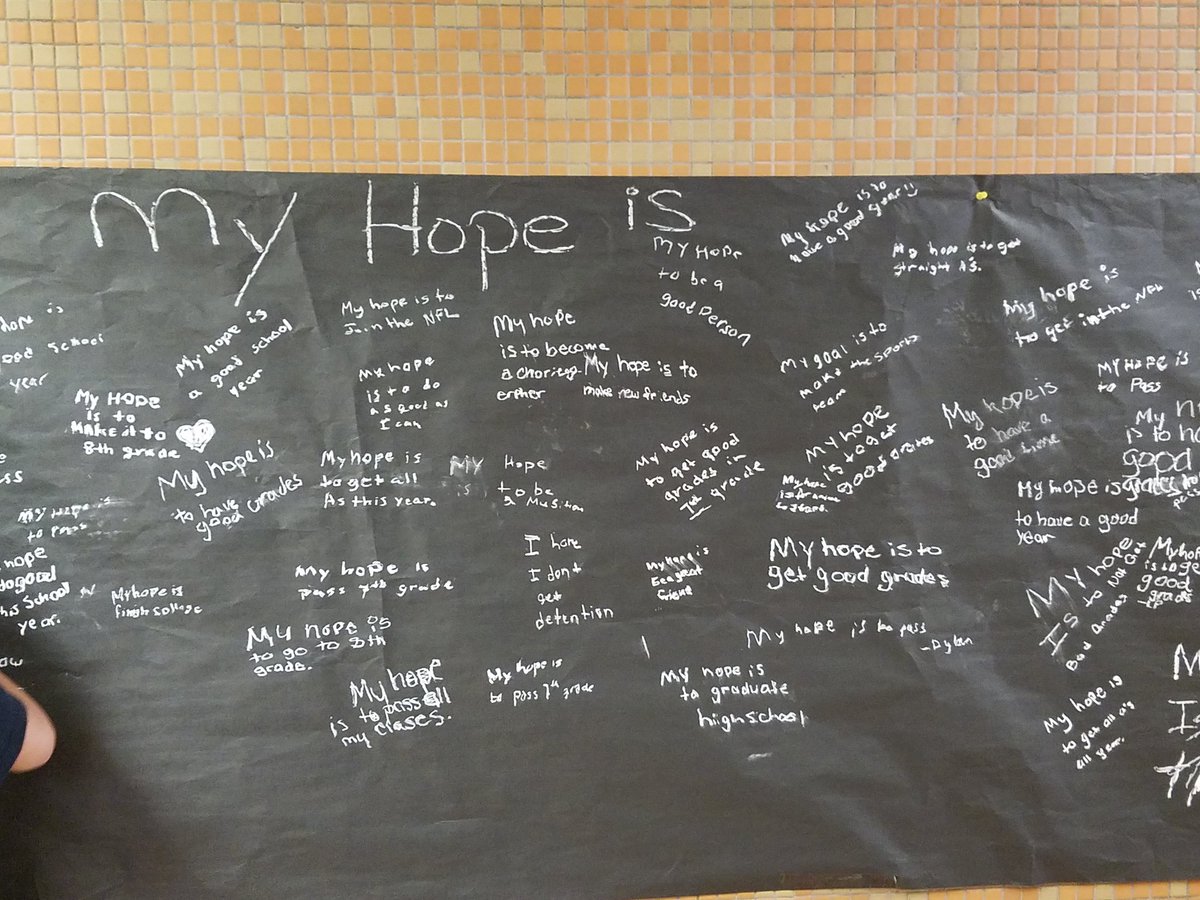 My Hope is
My hope is to
have a good year!!
MY HOPE
to be a
good Person
My hope is to get
straight A's.
My hope is
to get in the NFL
My hope is to
Join the NFL
My hope is
a good school
year
My hope
is to become
My hope is to
make new friends
My goal is to
make the sports
team
My hope
is to do
as good as
I can
MY HOPE is
to Pass
My HOPE
is to
MAKE it to
8th grade
My hope is
to have a
good time
My hope
is to get
good grades
My hope is
to have
good grades
My hope is
to get all
As this year.
MY Hope
is to be
a Musition
My hope is
to get good
grades in
7th grade
My hope is
to have a good
year
My hope is
to pass
My hope is
pass 7th grade
I hope
I dont
get
detention
My hope is to
get good grades
My hope
Is to Not Get
Bad Grades
My hope is
finish college
My hope is
to go to 8th
grade.
My hope is to pass
-Dylan
My hope
is to pass all
my clases.
My hope is
to pass 7th grade
My hope is
to graduate
high school
My hope is
to get all a's
all year.